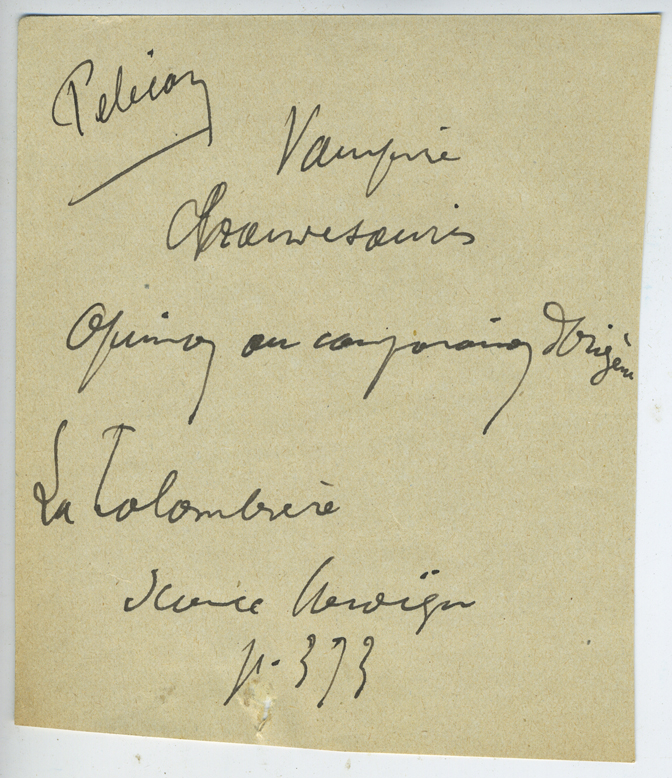 Pelican
Vampire
Chauvesouris
Opinion ou comparaison d'Origène
La Colombière
Science Héroïque
p. 373